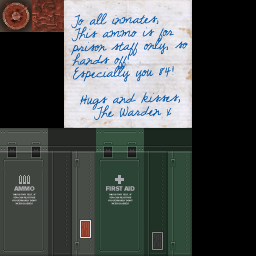 To all inmates,
This ammo is for
prison staff only, so
hands off!
Especially you 84!
Hugs and kisses,
The Warden x
AMMO
FIRST AID